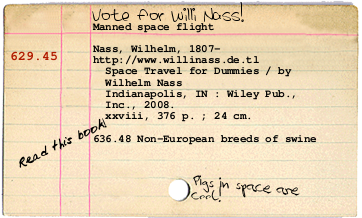 Vote for Willi Nass!
Manned space flight
629.45
Nass, Wilhelm, 1807-
http://www.willinass.de.tl
Space Travel for Dummies / by
Wilhelm Nass
Indianapolis, IN : Wiley Pub.,
Inc., 2008.
xxviii, 376 p. ; 24 cm.
Read this book!
636.48 Non-European breeds of swine
Pigs in space are
cool!